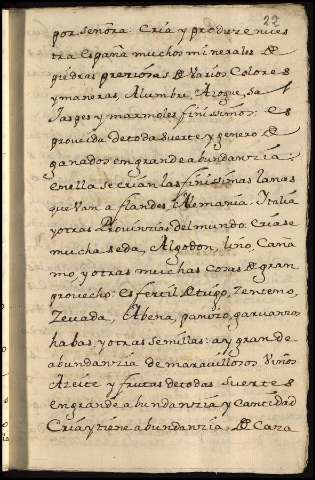 22
por señora: Cria y produze nues
tra España muchos minerales de
piedras preziosas de varios Colores
y maneras, Alumbre, Azogue, Sal
Jaspes y marmoles finissimos: es
proueida de toda suerte y genero de
ganados en grande abundanzia:
en ella se crian las finissimas lanas
que van a flandes, Alemania, Italia
y otras Prouinzias del mundo: Criase
mucha seda, Algodon, lino, Caña
mo, y otras muchas cosas de gran
prouecho: es fertil de trigo, zenteno,
Zeuada, Abena, panizo, garuanzos
habas, y otras semillas: ay grande
abundanzia de marauillosos vinos
Azeite y frutas de todas suertes
en grande abundanzia y cantidad
Cria y tiene abundanzia de Caza